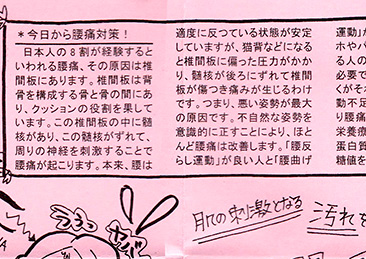 ＊今日から腰痛対策！
日本人の8割が経験すると
いわれる腰痛、その原因は椎
間板にあります。椎間板は背
骨を構成する骨と骨の間にあ
り、クッションの役割を果して
います。この椎間板の中に髄
核があり、この髄核がずれて、
周りの神経を刺激することで
腰痛が起こります。本来、腰は
適度に反つている状態が安定
していますが、猫背などになる
と椎間板に偏った圧力がかか
り、髄核が後ろにずれて椎間
板が傷つき痛みが生じるわけ
です。つまり、悪い姿勢が最大
の原因です。不自然な姿勢を
意識的に正すことにより、ほと
んど腰痛は改善します。「腰反
らし運動」が良い人と「腰曲げ
運動」が
ホやパ
る人の
必要で
くが傷
動不足
り腰痛
栄養療
蛋白質
糖値を
うっっ
ヤバ
肌の刺激となる
汚れを